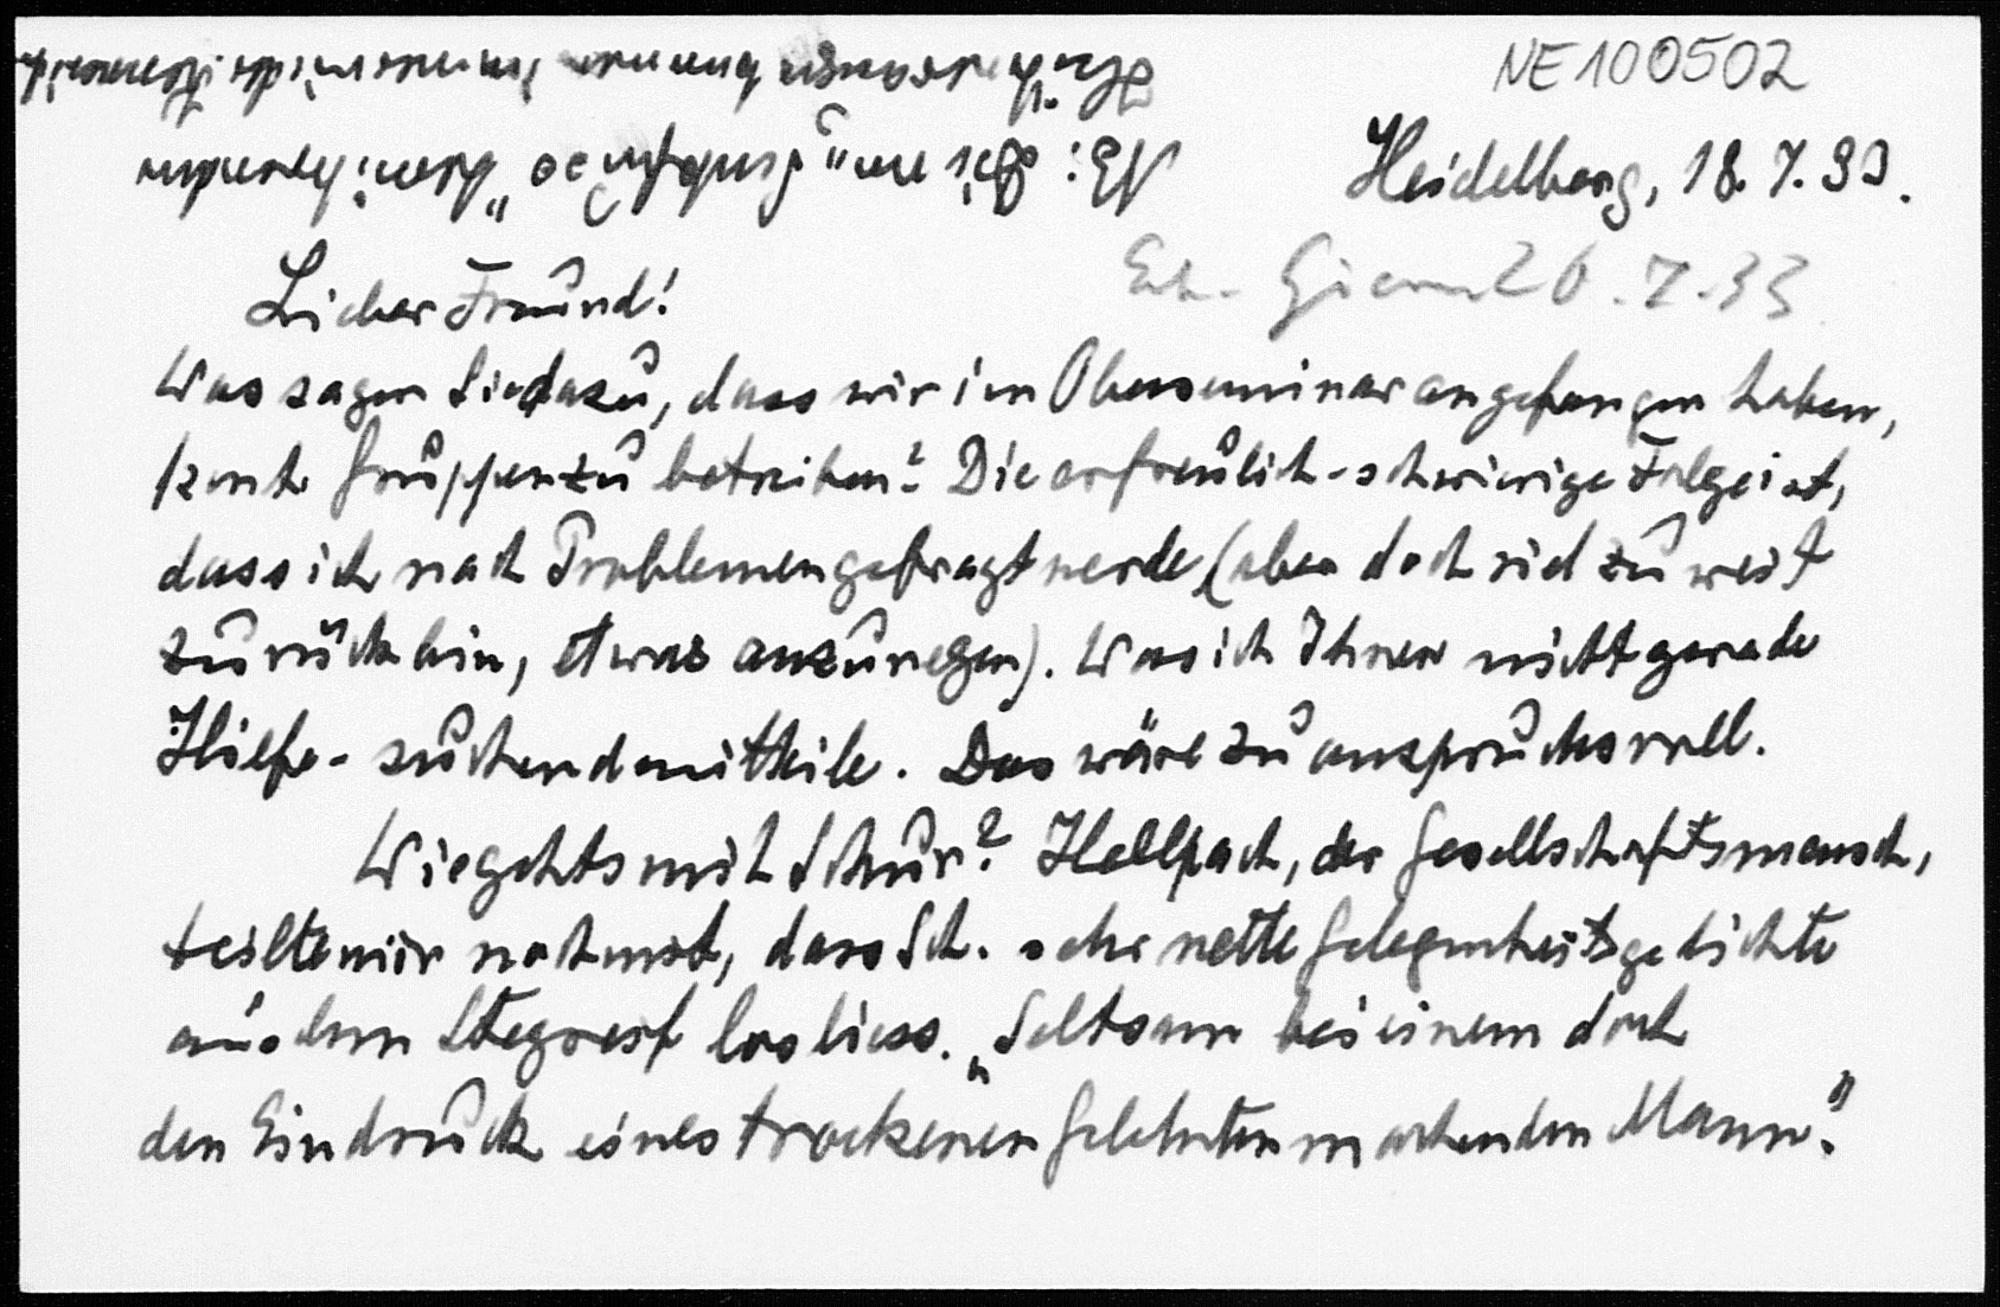 NE100502
Heidelberg, 18.7.33.
Gien 26.7.33
Lieber Freund!
Was sagen Sie dazu, dass wir im Oberseminar angefangen haben,
kont. Gruppen zu betreiben? Die erfreulich-schwierige Folge ist,
dass ich nach Problemen gefragt werde (aber doch viel zu weit
zurück bin, etwas anzuregen). Was ich Ihnen nicht gerade
Hilfe-suchend mitteile. Das wäre zu anspruchsvoll.
Wie gehts mit Schur? Hellpach, der Gesellschaftsmensch,
teilte mir noch mit, dass Sch. sehr nette Gelegenheitsgedichte
aus dem Stegreif losliess. „Seltsam bei einem doch
den Eindruck eines trockenen Gelehrten machenden Mann."
NB: Die